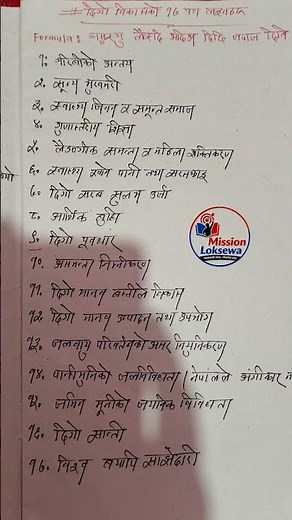 # दिगो विकासको १७ वटा लक्ष्यहरु
Formula:
१. गरिबीको अन्त्य
२. शून्य भुखमरी
३. स्वास्थ्य जीवन र समुन्नत समाज
४. गुणस्तरीय शिक्षा
५. लैङ्गीक समानता र महिला सशक्तिकरण
६. स्वच्छ खाने पानी तथा सरसफाइ
७. दिगो सरल सुलभ उर्जा
८. आर्थिक वृद्धि
९. दिगो पूर्वाधार
१०. असमानता निम्नीकरण
११. दिगो मानव बस्तीले विकास
१२. दिगो मानव उत्पादन तथा उपभोग
१३. जलवायु परिवर्तनको असर नियन्त्रिकरण
१४. पानीमुनिको जलविविधता / नेपालले अंगीकार
१५. जमिन मूनीको जैविक विविधता
१६. दिगो शान्ती
१७. विश्व व्यापि साझेदारी
Mission
Loksewa